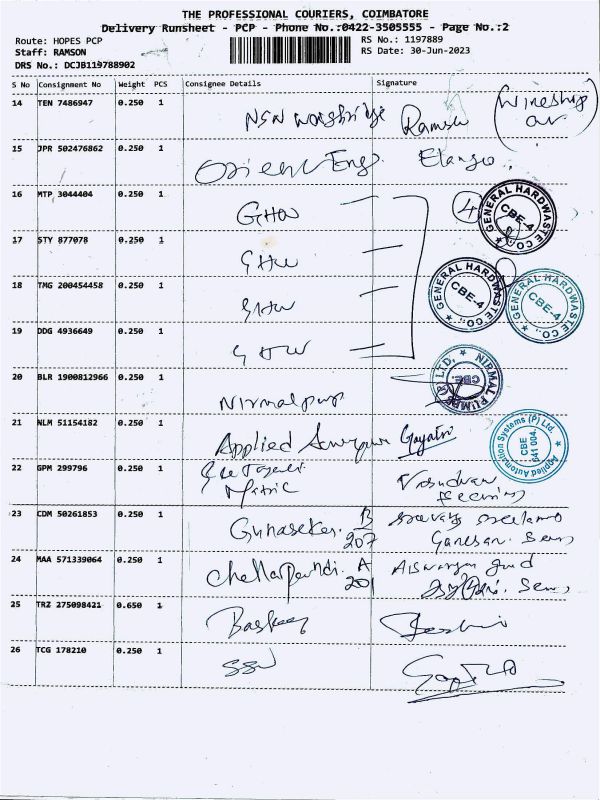 THE PROFESSIONAL COURIERS, COIMBATORE
Delivery Runsheet - PCP - Phone No.:0422-3505555 - Page No.:2
Route: HOPES PCP
RS No.: 1197889
Staff: RAMSON
RS Date: 30-Jun-2023
DRS No.: DCJB119788902
S No Consignment No Weight PCS Consignee Details Signature
14 TEN 7486947 0.250 1 NSN
15 JPR 502476862 0.250 1 Orient Eng. Elango
16 MTP 3044404 0.250 1 GHW 4
GENERAL HARDWASTE CO., CBE-4
17 STY 877078 0.250 1 GHW
18 TMG 200454458 0.250 1 GHW
GENERAL HARDWASTE CO., CBE-4
GENERAL HARDWASTE CO., CBE-4
19 DDG 4936649 0.250 1 GHW
20 BLR 1900812966 0.250 1 Nirmalpump
NIRMAL PUMPS (P) LTD., CBE.
21 NLM 51154182 0.250 1 Applied Gayatri
Applied Automation Systems (P) Ltd. CBE 641 004.
22 GPM 299796 0.250 1
23 CDM 50261853 0.250 1 Gunasekar. B
207 Ganesan.
24 MAA 571339064 0.250 1 A
201
25 TRZ 275098421 0.650 1 Baskar
26 TCG 178210 0.250 1 SSN